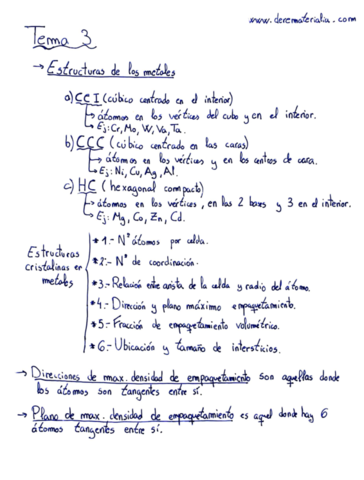 www.derematerialia.com
Tema 3
→ Estructuras de los metales
a) CCI (cúbico centrado en el interior)
→ átomos en los vértices del cubo y en el interior.
→ Ej: Cr, Mo, W, Va, Ta.
b) CCC (cúbico centrado en las caras)
→ átomos en los vértices y en los centros de cara.
→ Ej: Ni, Cu, Ag, Al.
c) HC (hexagonal compacto)
→ átomos en los vértices, en las 2 bases y 3 en el interior.
→ Ej: Mg, Co, Zn, Cd.
Estructuras cristalinas en metales
* 1.- Nº átomos por celda.
* 2.- Nº de coordinación.
* 3.- Relación entre arista de la celda y radio del átomo.
* 4.- Dirección y plano máximo empaquetamiento.
* 5.- Fracción de empaquetamiento volumétrico.
* 6.- Ubicación y tamaño de intersticios.
→ Direcciones de max. densidad de empaquetamiento son aquellas donde
los átomos son tangentes entre sí.
→ Plano de max. densidad de empaquetamiento es aquel donde hay 6
átomos tangentes entre sí.